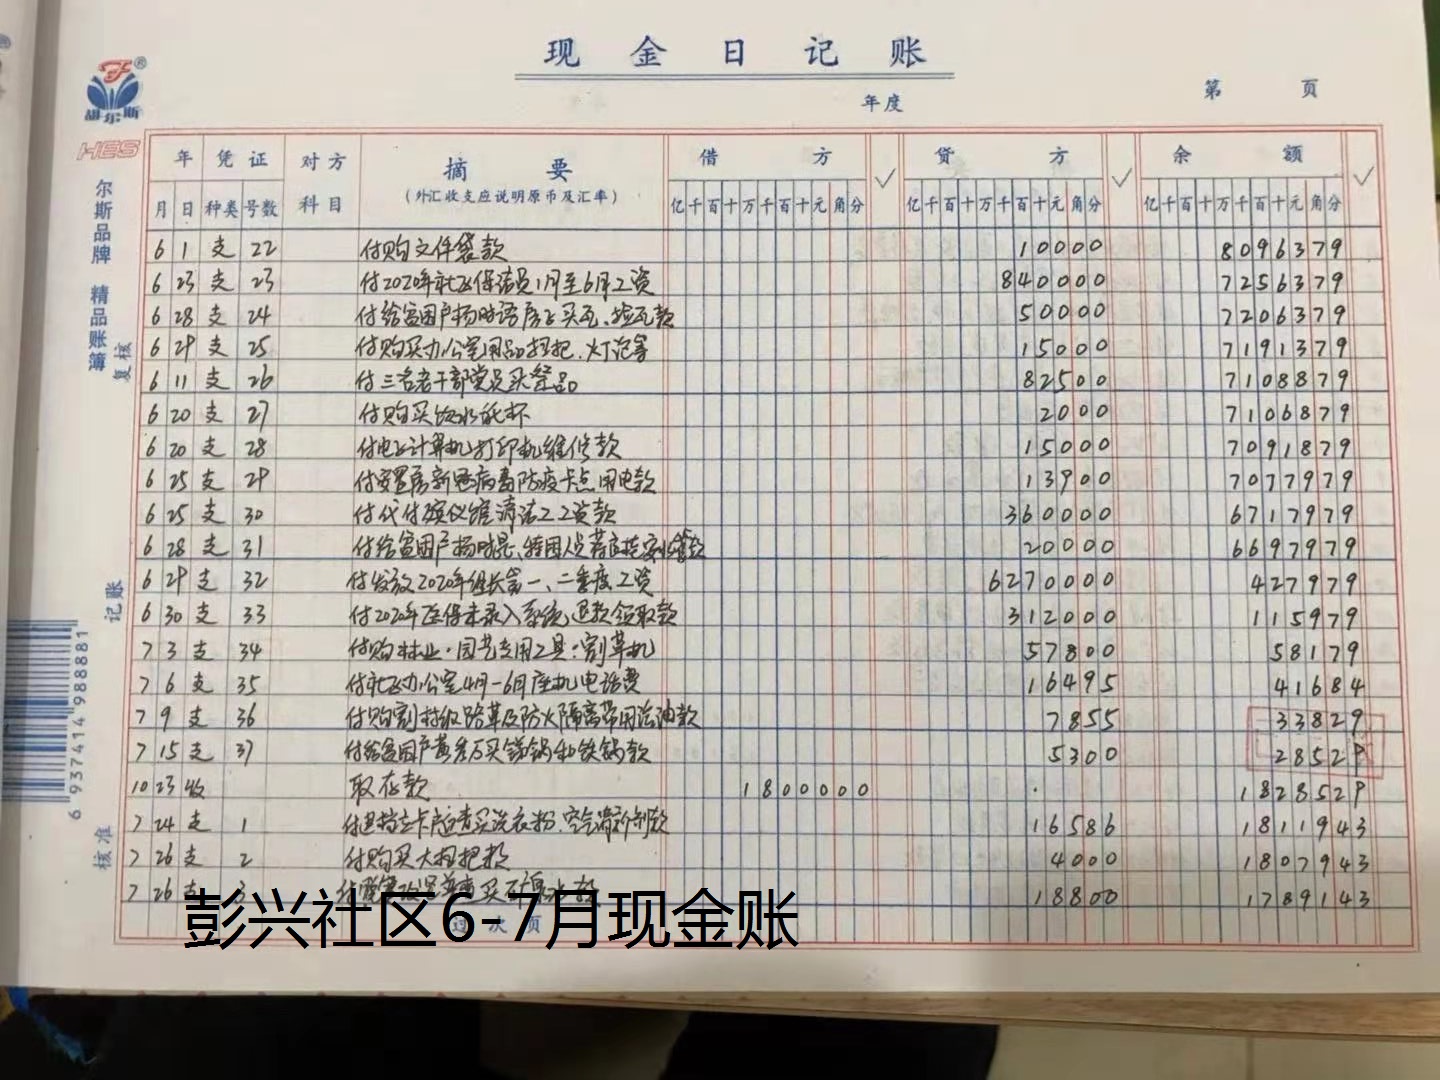 现 金 日 记 账
年度
第 页
胡尔斯
HES
尔斯品牌 精品账簿
复核
记账
核准
6 937414 988881
年 凭证 对方 摘要 借方 贷方 余额
月 日 种类 号数 科目 (外汇收支应说明原币及汇率) 亿千百十万千百十元角分 亿千百十万千百十元角分 亿千百十万千百十元角分
6 1 支 22 付购文件袋款 10000 8096379
6 23 支 23 付2020年社区保洁员1月至6月工资 840000 7256379
6 28 支 24 付给贫困户杨时 房子买瓦、 瓦款 50000 7206379
6 29 支 25 付购买办公室用品扫把、灯泡等 15000 7191379
6 11 支 26 付三名老干部党员买 品 82500 7108879
6 20 支 27 付购买饮水 杯 2000 7106879
6 20 支 28 付电子计算机打印机维修款 15000 7091879
6 25 支 29 付安置房新冠病毒防疫卡点用电款 13900 7077979
6 25 支 30 付代付殡仪馆清洁工工资款 360000 6717979
6 28 支 31 付给贫困户杨时 、特困人员 款 20000 6697979
6 29 支 32 付发放2020年组长第一、二季度工资 6270000 427979
6 30 支 33 付2020年医保未录入系统退款领取款 312000 115979
7 3 支 34 付购林业·园艺专用工具:割草机 57800 58179
7 6 支 35 付社区办公室4月-6月座机电话费 16495 41684
7 9 支 36 付购割 路草及防火隔离带用汽油款 7855 33829
7 15 支 37 付给贫困户黄 万买锑锅和铁锅款 5300 28529
10 23 收 取存款 1800000 1828529
7 24 支 1 付 档立卡 查买洗衣粉、空气清新剂款 16586 1811943
7 26 支 2 付购买大扫把款 4000 1807943
7 26 支 3 付 买 款 18800 1789143
过次页
彭兴社区6-7月现金账